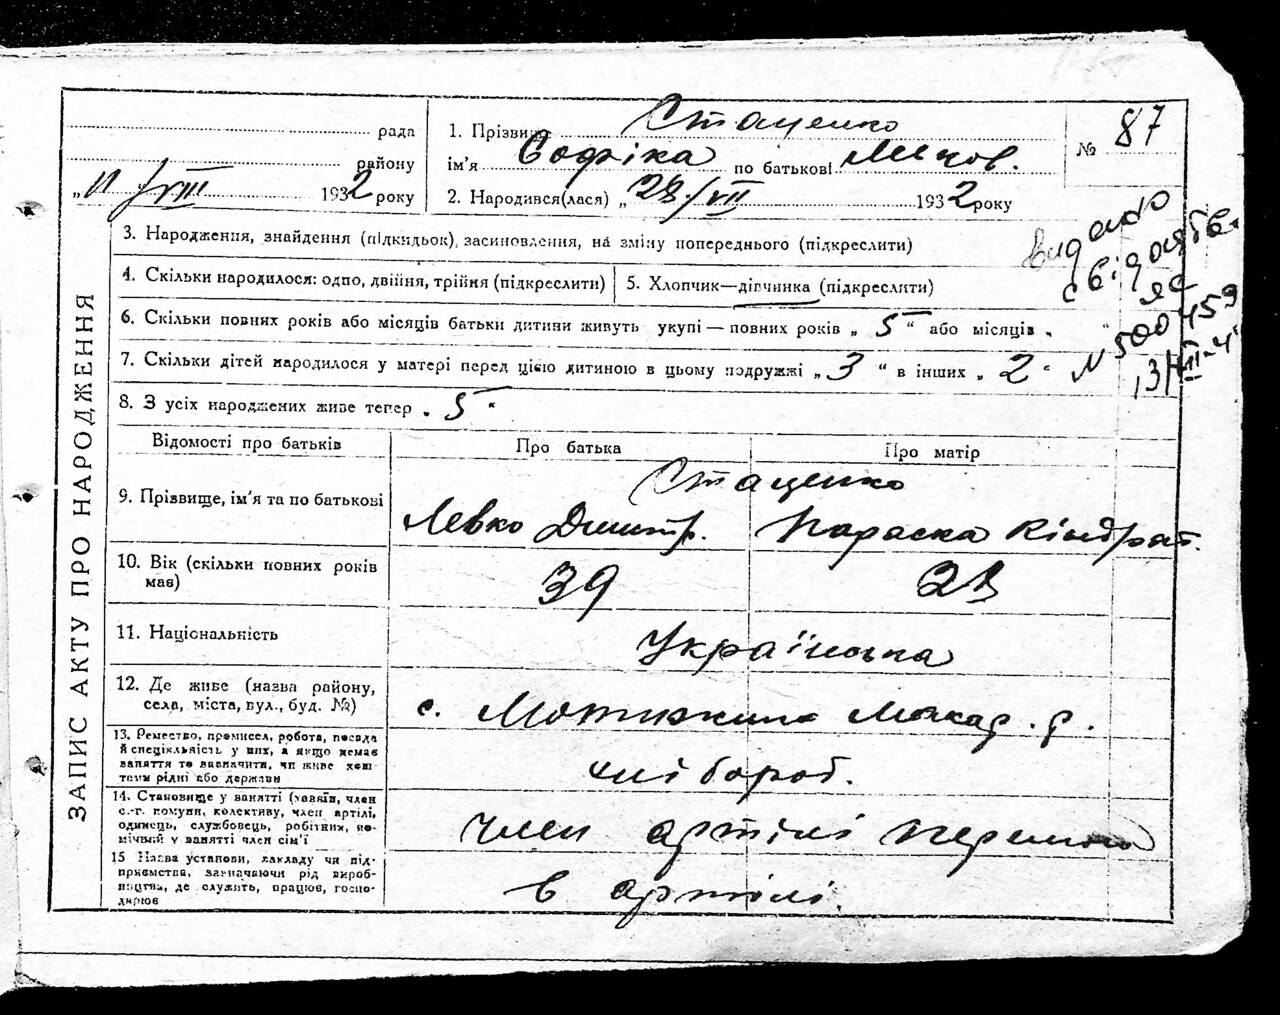 рада
району
„ 11 /VIII 1932 року
1. Прізвище Стаценко
ім'я Софіка по батькові
2. Народився(лася) „ 28./VII 1932 року
№ 87
видано
свідоцтво
ЯС
№ 500459
ЗАПИС АКТУ ПРО НАРОДЖЕННЯ
3. Народження, знайдення (підкидьок), засиновлення, на зміну попереднього (підкреслити)
4. Скільки народилося: одно, двійня, трійня (підкреслити)
5. Хлопчик—дівчинка (підкреслити)
6. Скільки повних років або місяців батьки дитини живуть укупі — повних років „ 5 “ або місяців „ “
7. Скільки дітей народилося у матері перед цією дитиною в цьому подружжі „ 3 “ в інших „ 2 “
8. З усіх народжених живе тепер „ 5 “
Відомості про батьків
Про батька
Про матір
9. Прізвище, ім'я та по батькові
Стаценко
Левко Дмитр.
Параска Кіндрат.
10. Вік (скільки повних років
має)
39
11. Національність
Українська
12. Де живе (назва району,
села, міста, вул., буд. №)
с. Мотижино Макар. р.
13. Ремество, промисел, робота, посада
й спеціяльність у них, а якщо немає
заняття то визначити, чи живе кош-
тами рідні або держави
хлібороб.
14. Становище у занятті (хазяїн, член
с.-г. комуни, колективу, член артілі,
одинець, службовець, робітник, по-
мічний у занятті член сім'ї
член артілі
15 Назва установи, закладу чи під-
приємства, зазначаючи рід вироб-
ництва, де служить, працює, госпо-
дарює
в артілі.